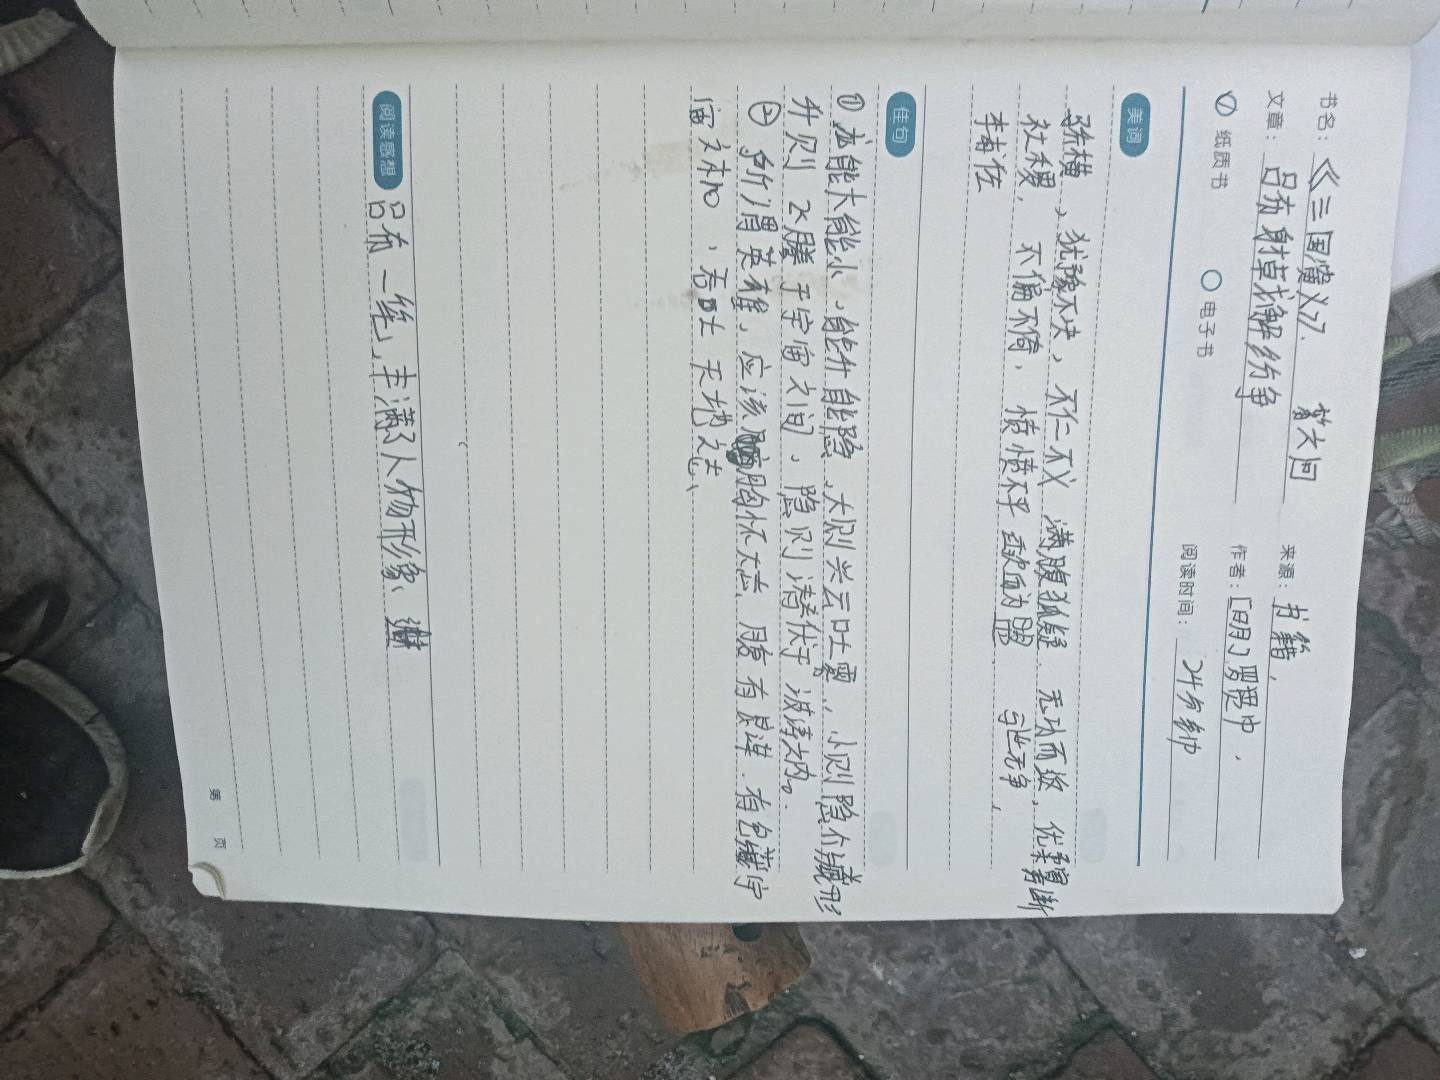 书名:《三国演义》. 第六回
来源:书籍,
文章:吕布射戟解纷争
作者:[明]罗贯中,
纸质书 电子书
阅读时间:24分钟
美词
骄横、犹豫不决,不仁不义 满腹狐疑 无功而返,优柔寡断
社稷, 不偏不倚, 愤愤不平 歃血为盟 与世无争,
李有佐
佳句
① 龙能大能小、能升能隐、大则兴云吐雾,小则隐介藏形
升则飞腾于宇宙之间、隐则潜伏于波涛之内。
② 所谓英雄,应该胸怀大志,腹有良谋.有包藏宇
宙之机,吞吐天地之志、
阅读感想
吕布一绝,丰满了人物形象、
第 页